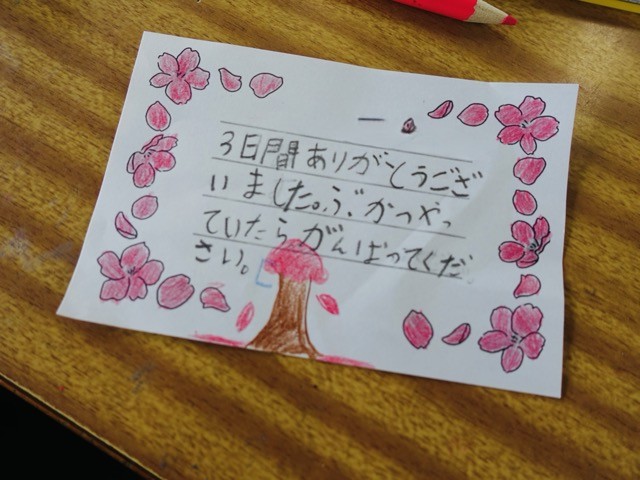 3日間ありがとうござ
いました。ぶ、かつやっ
ていたらがんばってくだ
さい。